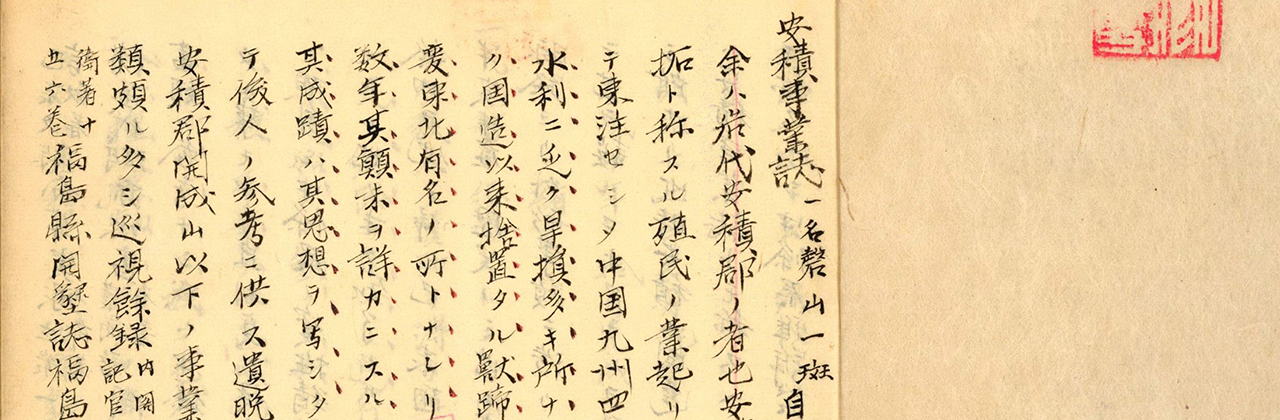 安積事業誌 一名磐山一斑 自
余ハ岩代安積郡ノ者也安
拓ト称スル殖民ノ業起リ
テ東注セシメ中国九州四
水利ニ乏ク旱損多キ所ナ
ハ国造以来捨置タル獣蹄
変東北有名ノ所トナレリ
数年其顛末ヲ詳カニスル
其成蹟ハ其思想ヲ写シタ
テ後人ノ参考ニ供ス遺晩
安積郡開成山以下ノ事業
類頗ル多シ巡視餘録 内閣記官
衛著十五六巻 福島縣開墾誌福島